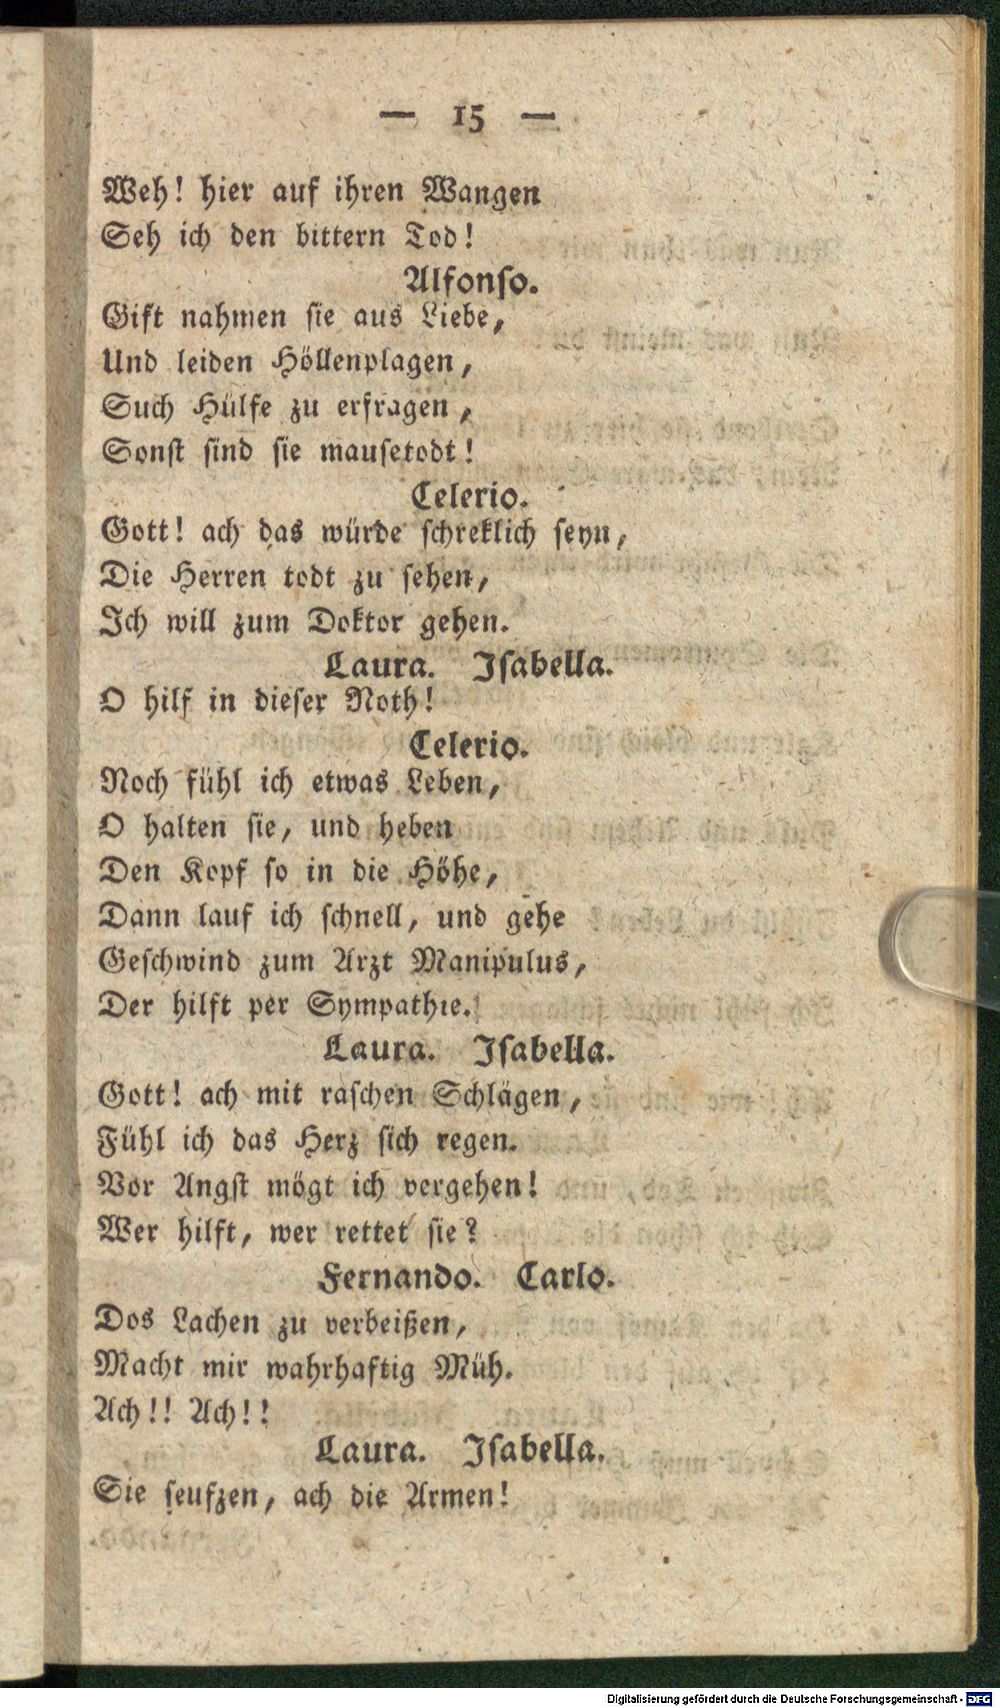 — 15 —
Weh! hier auf ihren Wangen
Seh ich den bittern Tod!
Alfonso.
Gift nahmen sie aus Liebe,
Und leiden Höllenplagen,
Such Hülfe zu erfragen,
Sonst sind sie mausetodt!
Celerio.
Gott! ach das würde schreklich seyn,
Die Herren todt zu sehen,
Ich will zum Doktor gehen.
Laura. Isabella.
O hilf in dieser Noth!
Celerio.
Noch fühl ich etwas Leben,
O halten sie, und heben
Den Kopf so in die Höhe,
Dann lauf ich schnell, und gehe
Geschwind zum Arzt Manipulus,
Der hilft per Sympathie.
Laura. Isabella.
Gott! ach mit raschen Schlägen,
Fühl ich das Herz sich regen.
Vor Angst mögt ich vergehen!
Wer hilft, wer rettet sie?
Fernando. Carlo.
Dos Lachen zu verbeißen,
Macht mir wahrhaftig Müh.
Ach!! Ach!!
Laura. Isabella.
Sie seufzen, ach die Armen!
Digitalisierung gefördert durch die Deutsche Forschungsgemeinschaft - DFG